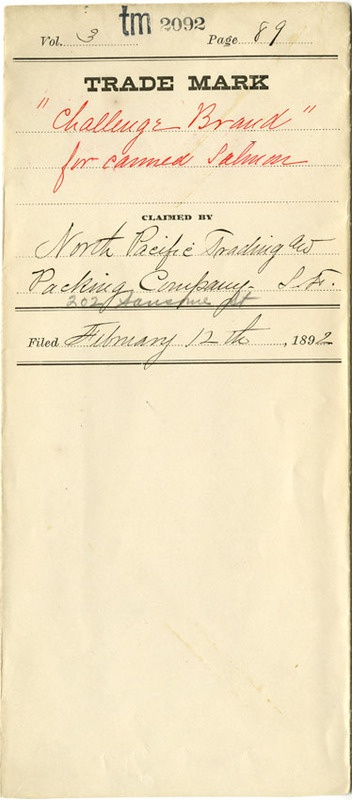 tm 2092
Vol. 3 Page 89
TRADE MARK
"Challenge Brand"
for canned Salmon
CLAIMED BY
North Pacific Trading and
Packing Company. S. F.
202 Sansome St
Filed February 12th, 1892